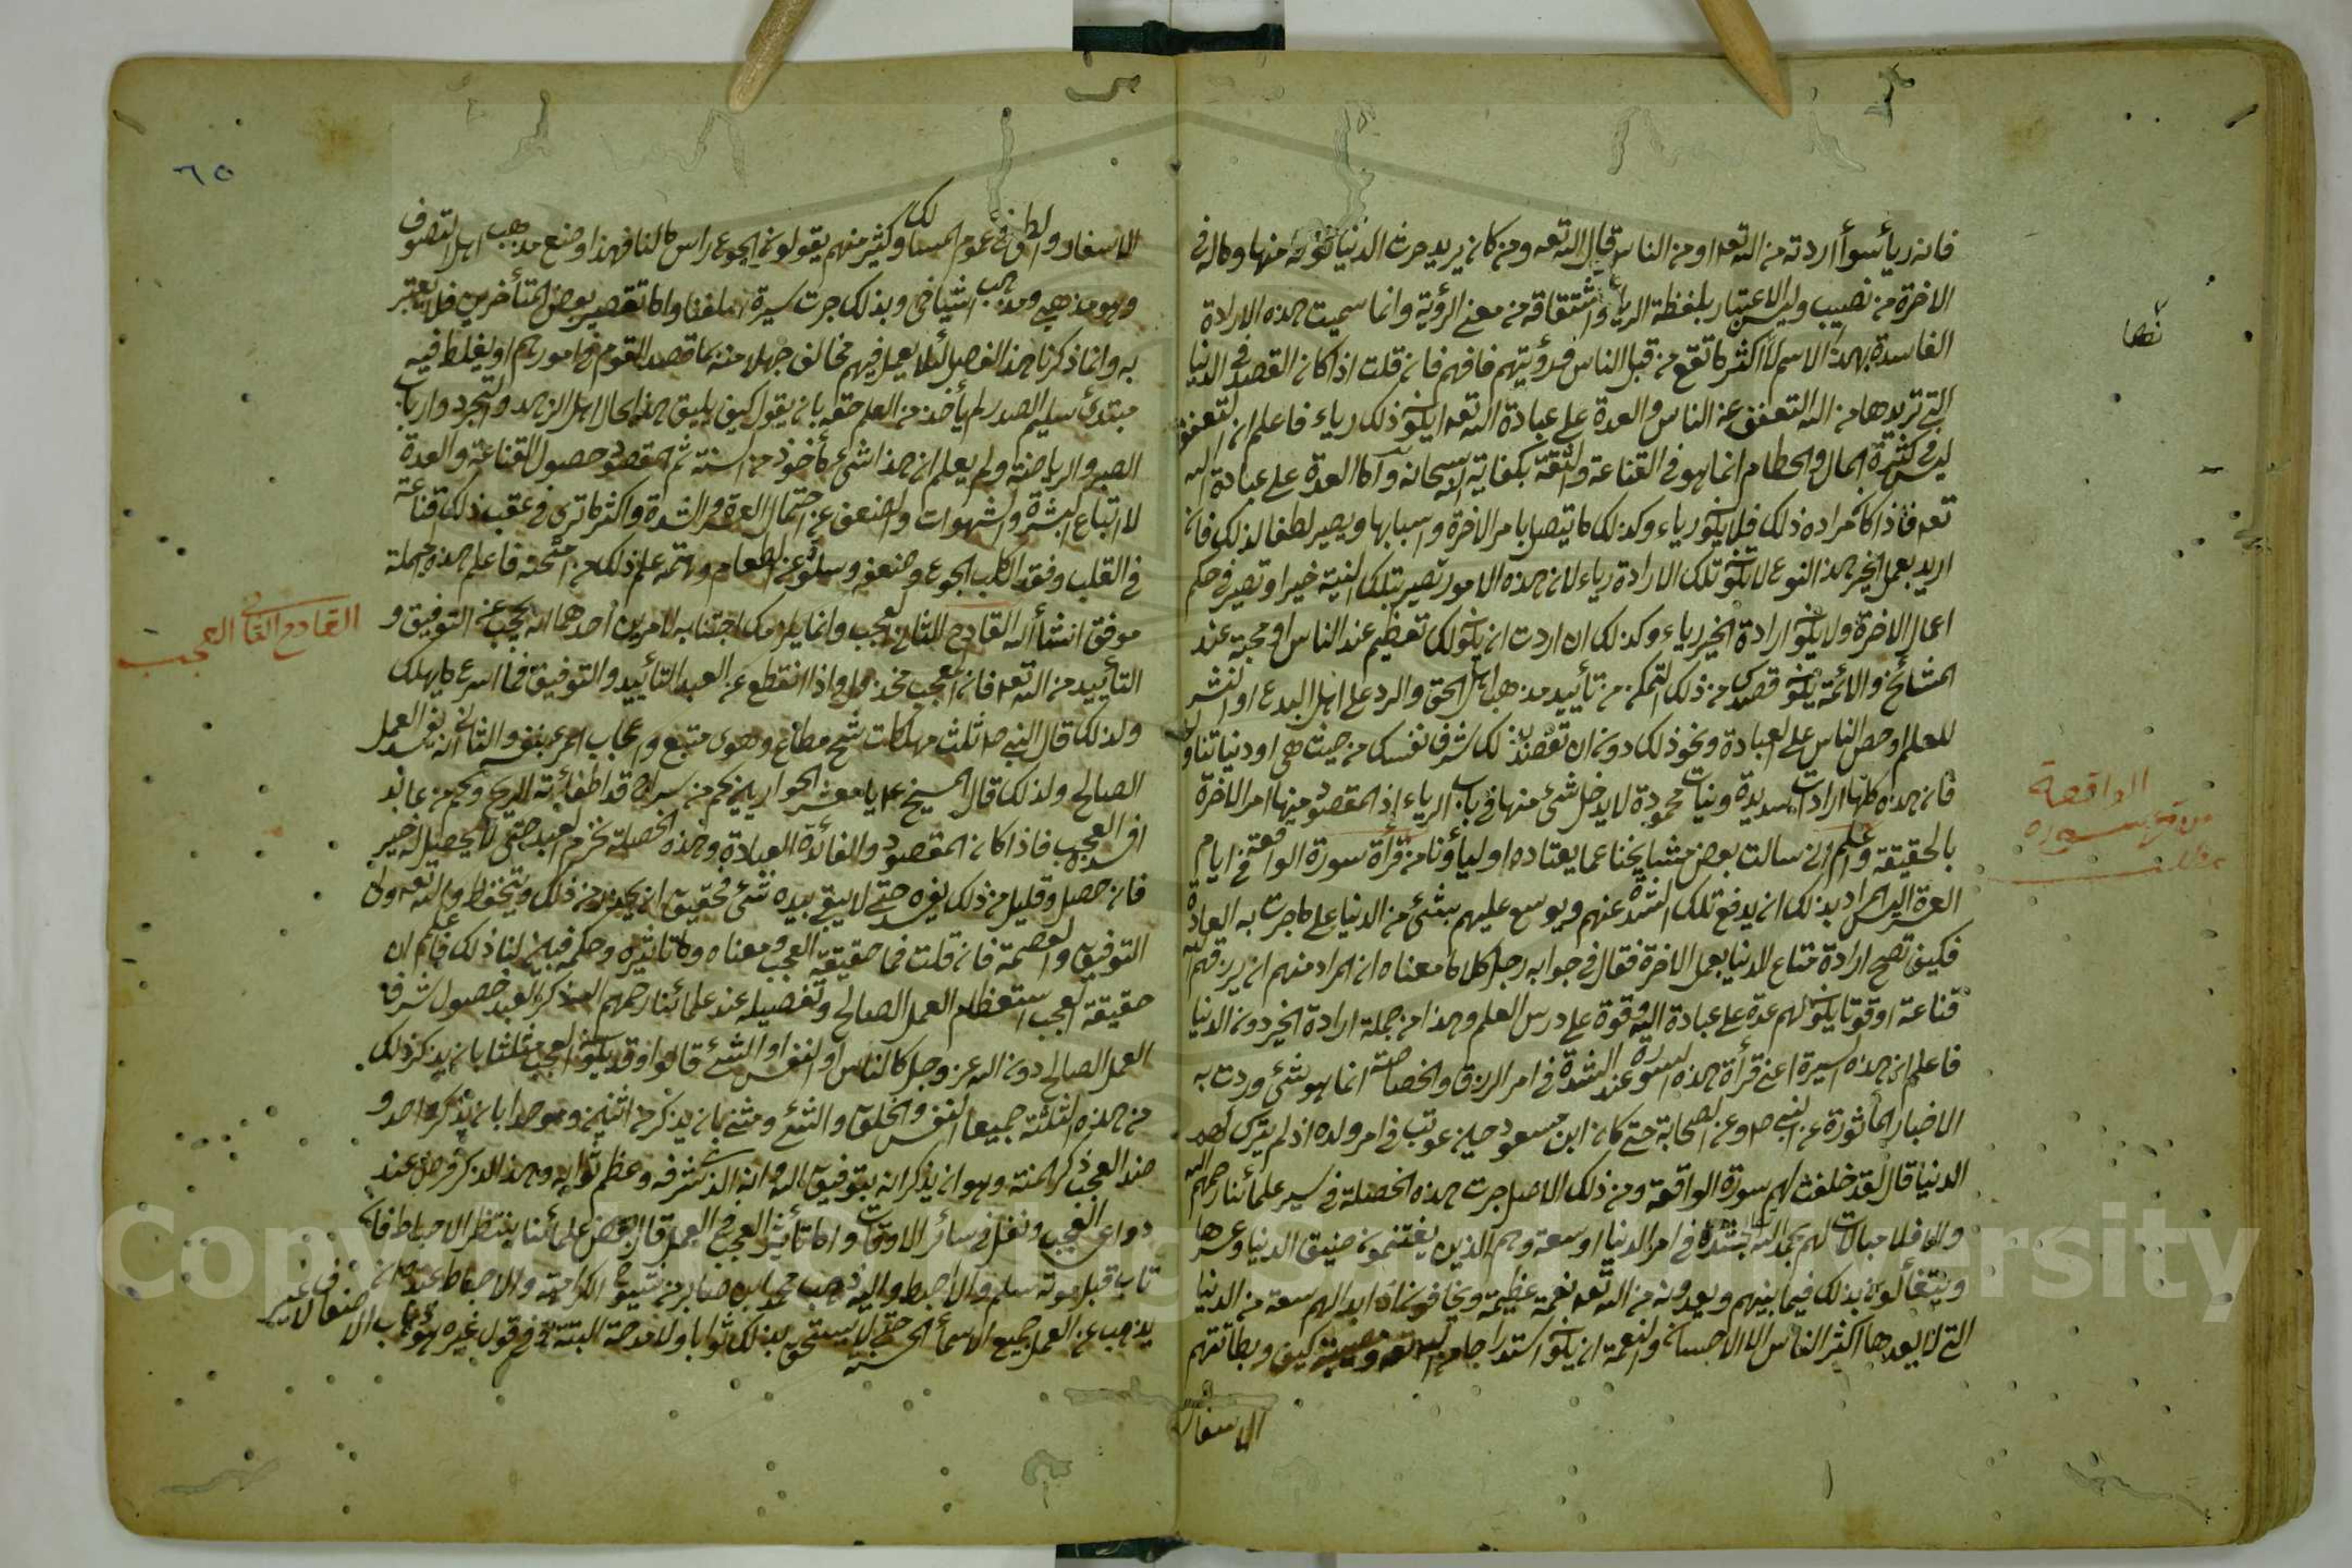 فانه رياء سوأ اردته من الله تعه او من الناس قال الله تعه ومن كان يريد حرث الدنيا نؤته منها وماله في
الاخرة من نصيب وليس الاعتبار بلفظة الرياء واشتقاقه من معنى الرؤية وانما سميت هذه الارادة
الفاسدة بهذا الاسم لأن اكثر ما تقع من قبل الناس ورؤيتهم فافهم فان قلت اذا كان القصد في الدنيا
التي تريدها من الله التعفف عن الناس والعدة على عبادة الله تعه ايكون ذلك رياء فاعلم ان التعفف
ليس في كثرة المال والحطام انما هو في القناعة والثقة بكفاية الله سبحانه واما العدة على عبادة الله
تعه فاذا كان مراده ذلك فلا يكون رياء وكذلك ما يتصل بامر الاخرة واسبابها ويصير لطفا لذلك فان
اريد بعمل الخير هذا النوع لا تكون تلك الارادة رياء لان هذه الامور تصير بتلك النية خيرا وتصير في حكم
اعمال الاخرة ولا يكون ارادة الخير رياء وكذلك ان اردت ان يكون لك تعظيم عند الناس او محبة عند
المشائخ والائمة يكون قصدك من ذلك التمكن من تأييد مذهب اهل الحق والرد على اهل البدع او النشر
للعلم او حض الناس على العبادة ونحو ذلك دون ان تقصد بذلك شرف نفسك من حيث هي او دنيا تنالها
فان هذه كلها ارادات سديدة ونيات محمودة لا يدخل شئ منها في باب الرياء اذ المقصود منها امر الاخرة
بالحقيقة واعلم اني سالت بعض مشايخنا عما يعتاده اوليأونا من قرأة سورة الواقعة في ايام
العسرة اليس المراد بذلك ان يدفع تلك الشدة عنهم ويوسع عليهم بشئ من الدنيا على ما جرت به العادة
فكيف تصح ارادة متاع الدنيا بعمل الاخرة فقال في جوابه رحه كلاما معناه ان المراد منهم ان يرزقهم الله
قناعة او قوتا يكون لهم عدة على عبادة الله وقوة على درس العلم وهذا من جملة ارادة الخير دون الدنيا
فاعلم ان هذه السيرة اعنى قرأة هذه السورة عند الشدة في امر الرزق والخصاصة انما هو شئ وردت به
الاخبار المأثورة عن النبي صم وعن الصحابة حتى كان ابن مسعود حين عوتب في امر ولده اذ لم يترك لهم
الدنيا قال لقد خلفت لهم سورة الواقعة ومن ذلك الاصل جرت هذه الخصلة في سير علمائنا رحمهم الله
والا فلا مبالات لهم بحمد الله بشدة في امر الدنيا او سعة وهم الذين يغتنمون ضيق الدنيا وعسرها
ويتفألون بذلك فيما بينهم ويعدونه من الله تعه نعمة عظيمة ويخافون اذا بدا لهم سعة من الدنيا
التي لا يعدها اكثر الناس الا الاحسان والنعمة ان يكون استدراجا من الله تعه ومصيبة كيف وبطائنهم
الاسفار
نصا
الواقعة
سورة
مطلب
٦٥
الاسفار والطى في عموم المسالك وكثير منهم يقولون الجوع راس مالنا فهذا وضع مذهب اهل التصوف
وهو مذهبي ومذهب اشياخى وبذلك جرت سيرة سلفنا واما تقصير بعض المتأخرين فلا يعتبر
به وانما ذكرنا هذا الفصل لئلا يعمل فيهم مخالف جهلا منه بما قصد القوم في امورهم او يغلط فيه
مبتدئ سليم الصدر لم يأخذ من العلم حقه بان يقول كيف يليق هذا بحال اهل الزهد والتجرد وارباب
الصبر والرياضة ولم يعلم ان هذا شئ مأخوذ من السنة ثم المقصود حصول القناعة والعدة
لا اتباع الشره والشهوات والضعف عن احتمال العسرة والشدة واكثر ما ترى في عقب ذلك قناعة
في القلب وفقد الكلب الجوع وضعفه وسلوة عن الطعام وهمة علم ذلك من امتحنه فاعلم هذه الجملة
موفق انشأ الله القادح الثاني العجب وانما يلزمك اجتنابه لامرين احدهما انه يحجب عن التوفيق و
التأييد من الله تعه فان المعجب مخذول فاذا انقطع عن العبد التأييد والتوفيق فما اسرع ما يهلك
ولذلك قال النبي صم ثلث مهلكات شح مطاع وهوى متبع واعجاب المرء بنفسه والثاني انه يفسد العمل
الصالح ولذلك قال المسيح عم يا معشر الحواريين كم من سراج قد اطفأته الريح وكم من عابد
افسده العجب فاذا كان المقصود والفائدة العبادة وهذه الخصلة تحرم العبد حتى لا يحصل له خير
فان حصل وقليل من ذلك يفسده حتى لا يبقى بيده شئ فحقيق ان يحذر من ذلك ويتحفظ والله تعه ولى
التوفيق والعصمة فان قلت فما حقيقة العجب ومعناه وما تاثيره وحكمه فبين لنا ذلك فاعلم ان
حقيقة العجب استعظام العمل الصالح وتفصيله عند علمائنا رحمهم الله ذكر العبد حصول شرف
العمل الصالح دون الله عز وجل كالناس او النفس او الشئ قالوا وقد يكون العجب مثلثا بان يذكر ذلك
من هذه الثلثة جميعا النفس والخلق والشئ ومثنى بان يذكر من اثنين وموحدا بان يذكر من احد و
ضد العجب ذكر المنة وهو ان يذكر انه بتوفيق الله وانه الذي شرفه وعظم ثوابه وهذا الذكر فرض عند
دواعى العجب ونفل في سائر الاوقات واما تأثير العجب في العمل قال بعض علمائنا ينتظر الاحباط فان
تاب قبل موته سلم والا احبط واليه ذهب محمد ابن صابر من شيوخ الكرامية والاحباط عنده ان
يذهب عن العمل جميع الاسماء الحسنى حتى لا يستحق بذلك ثوابا ولا مدحة البتة وفي قول غيره هو ذهاب الاضعاف لا غير
القادح الثاني العجب